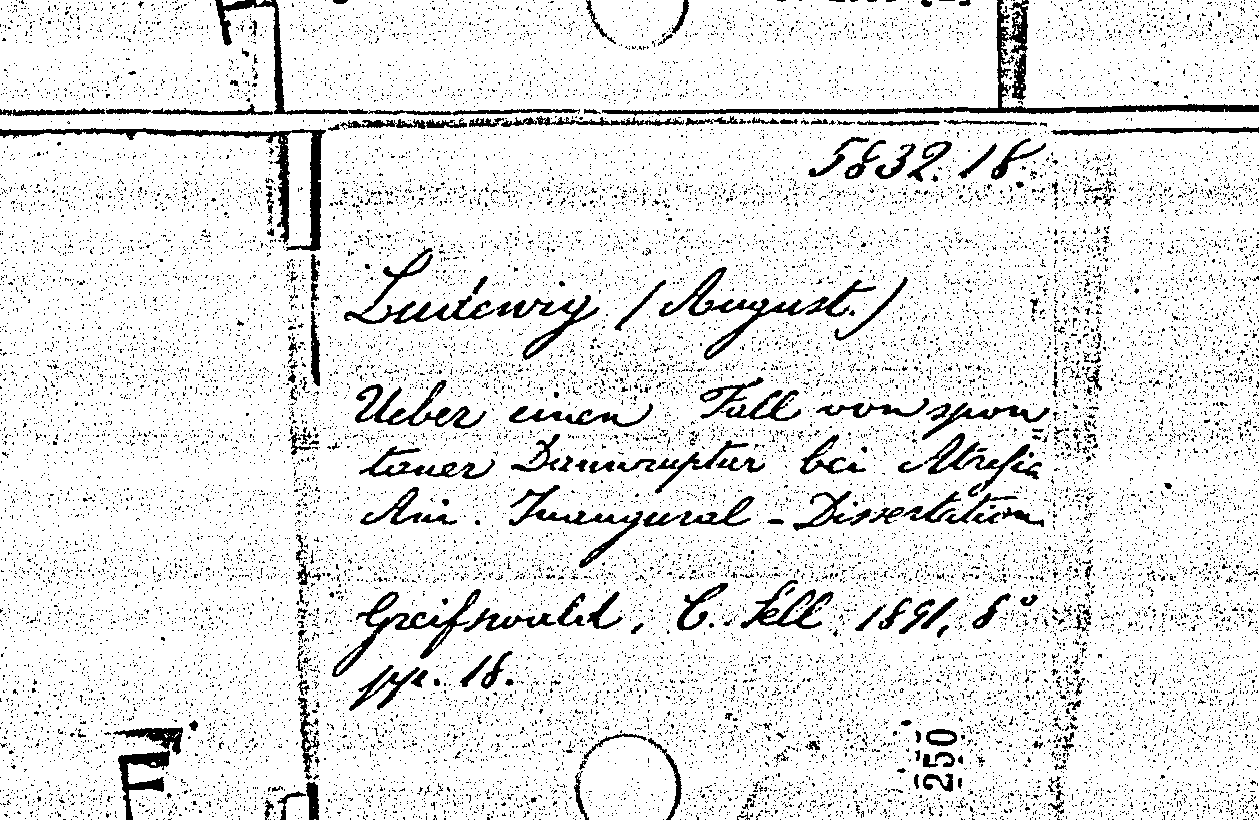 5832. 18.
Ludewig (August.)
Ueber einen Fall von spon
taner Darmruptur bei Atresia
Ani. Inaugural-Dissertation.
Greifswald, C. Sell 1891, 8°
pp. 18.
250